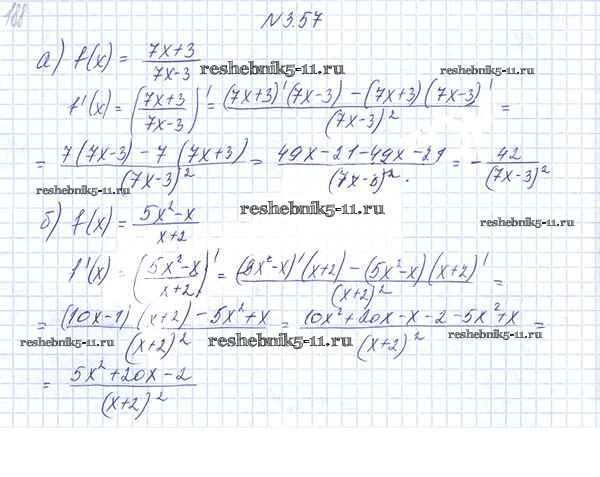 188
N 3.57
а) f(x) = (7x+3)/(7x-3)
reshebnik5-11.ru reshebnik5-11.ru
f'(x) = ((7x+3)/(7x-3))' = ((7x+3)'(7x-3) - (7x+3)(7x-3)')/(7x-3)² =
= (7(7x-3) - 7(7x+3))/(7x-3)² = (49x-21-49x-21)/(7x-3)² = - 42/(7x-3)²
reshebnik5-11.ru reshebnik5-11.ru reshebnik5-11.ru
б) f(x) = (5x²-x)/(x+2)
f'(x) = ((5x²-x)/(x+2))' = ((5x²-x)'(x+2) - (5x²-x)(x+2)')/(x+2)² =
= ((10x-1)(x+2) - 5x²+x)/(x+2)² = (10x²+20x-x-2-5x²+x)/(x+2)² =
reshebnik5-11.ru reshebnik5-11.ru reshebnik5-11.ru
= (5x²+20x-2)/(x+2)²